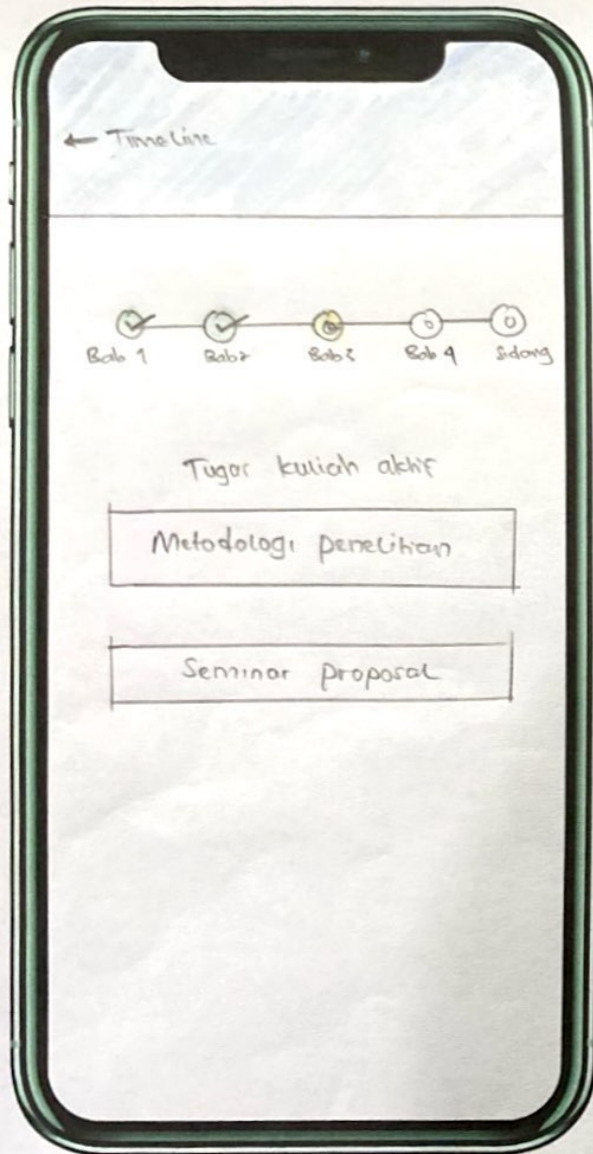 ← Timeline
Bab 1 Bab 2 Bab 3 Bab 4 Sidang
Tugas kuliah aktif
Metodologi penelitian
Seminar proposal